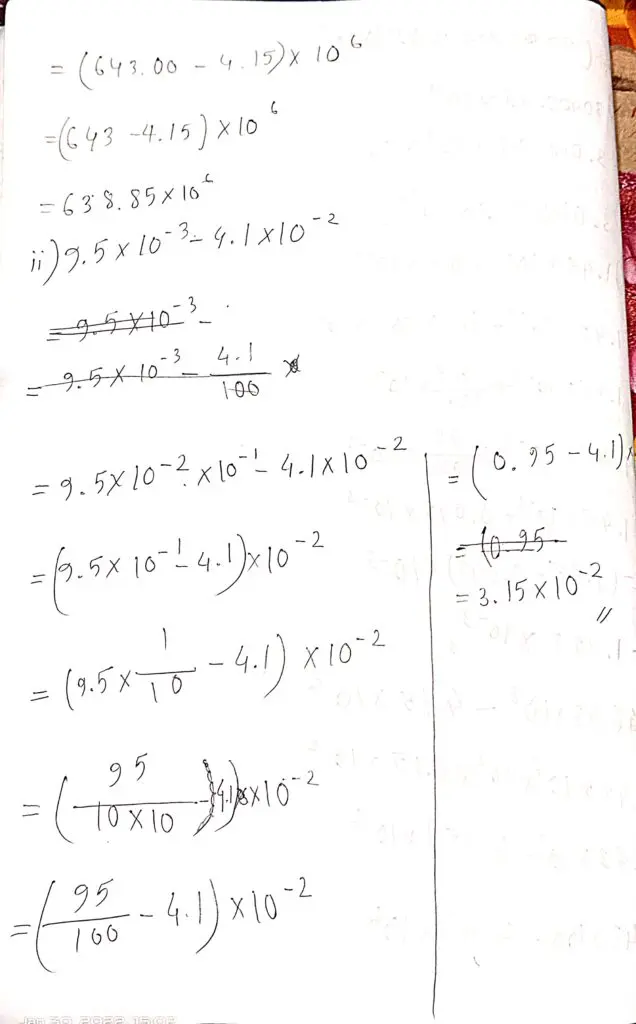 = (643.00 - 4.15) × 10⁶
= (643 - 4.15) × 10⁶
= 638.85 × 10⁶
ii) 9.5 × 10⁻³ - 4.1 × 10⁻²
= 9.5 × 10⁻³ -
= 9.5 × 10⁻³ - 4.1/100 ×
= 9.5 × 10⁻² × 10⁻¹ - 4.1 × 10⁻²
= (9.5 × 10⁻¹ - 4.1) × 10⁻²
= (9.5 × 1/10 - 4.1) × 10⁻²
= (95/10×10 - 4.1) × 10⁻²
= (95/100 - 4.1) × 10⁻²
= (0.95 - 4.1) ×
= (0.95
= 3.15 × 10⁻² //
Jan 30, 2022 15:02